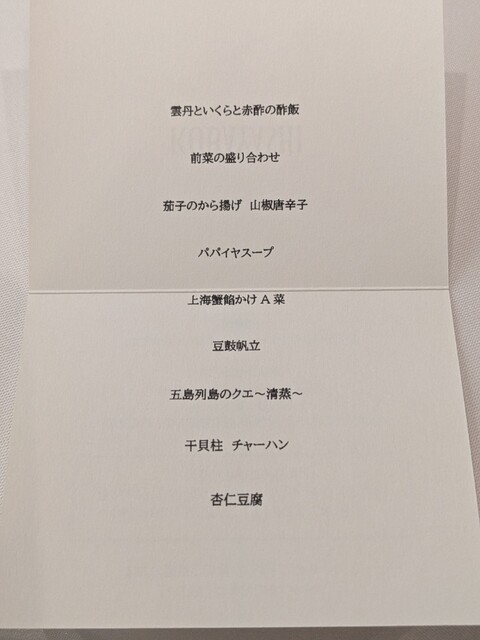 雲丹といくらと赤酢の酢飯
前菜の盛り合わせ
茄子のから揚げ 山椒唐辛子
パパイヤスープ
上海蟹餡かけA菜
豆鼓帆立
五島列島のクエ～清蒸～
干貝柱 チャーハン
杏仁豆腐